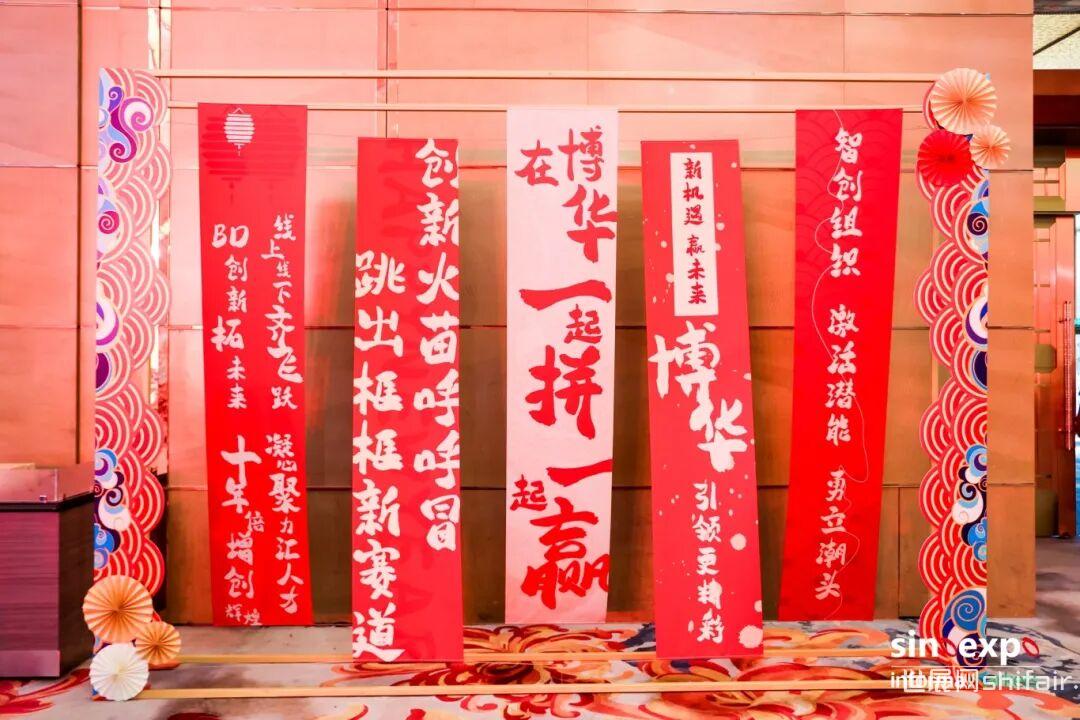 线上线下齐飞跃 凝心聚力汇人才
BD创新拓未来 十年倍增创辉煌
创新火苗呼呼冒
跳出框框新赛道
在博华
一起拼
一起赢
新机遇 赢未来
博华
引领更精彩
智创组织 激活潜能 勇立潮头
世展网shifair